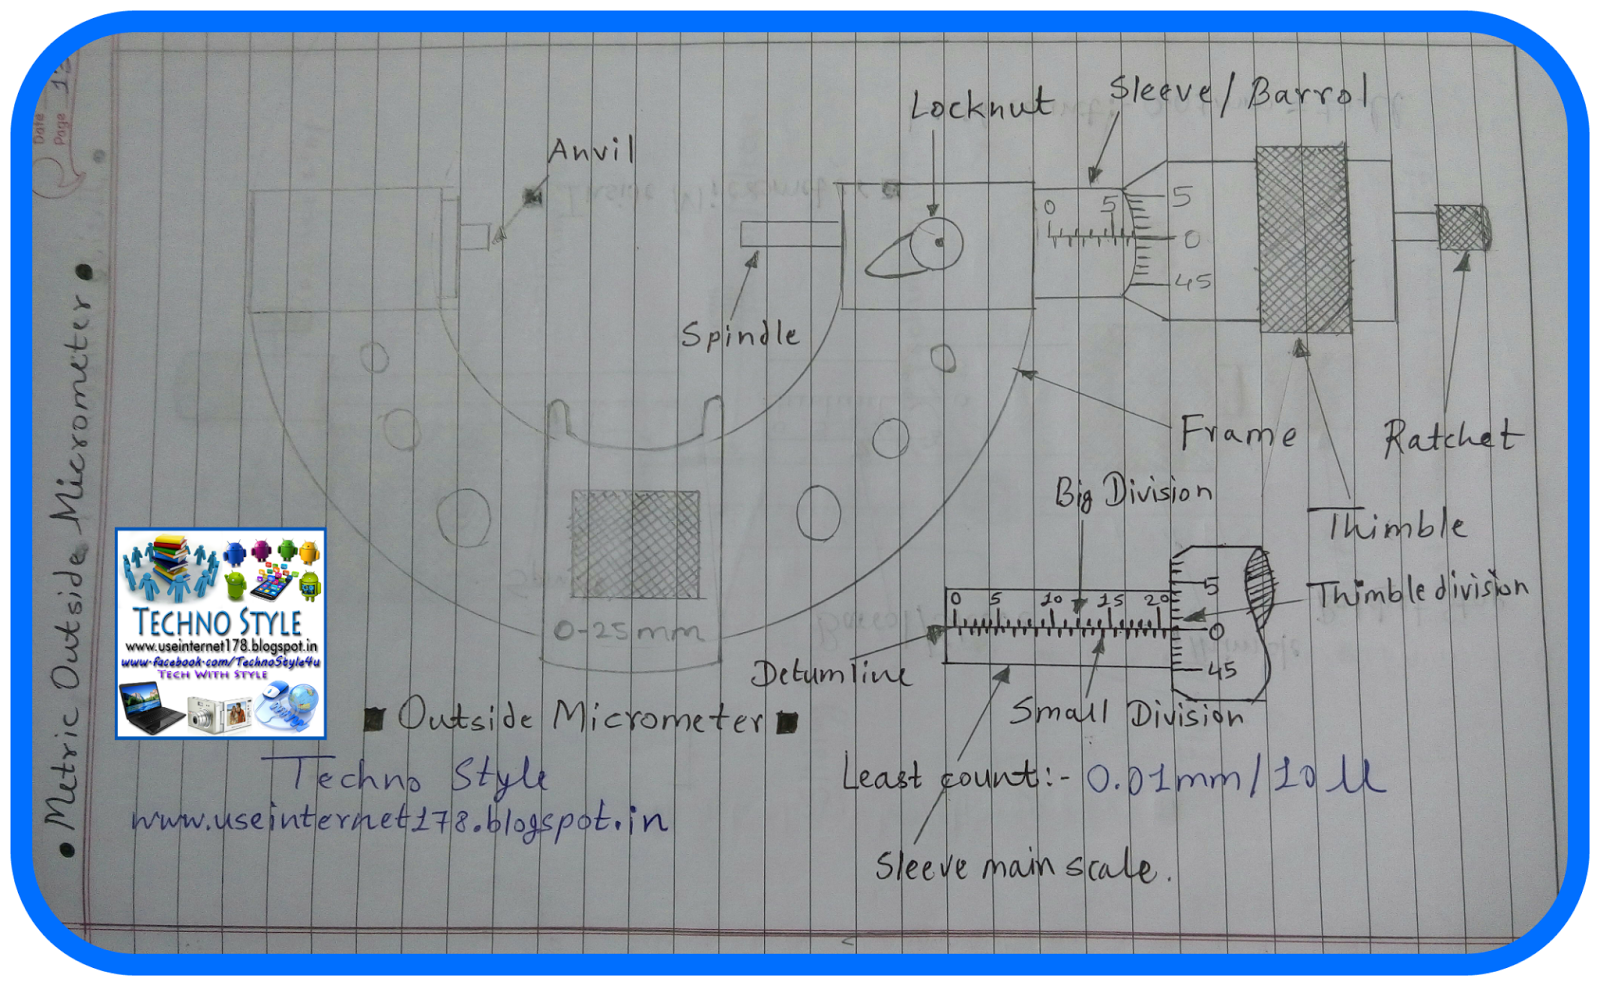 Date
Page
Metric Outside Micrometer
Anvil
Locknut
Sleeve/Barrol
0 5
5
0
45
Spindle
Frame
Ratchet
Thimble
Big Division
Thimble division
0 5 10 15 20
5
0
45
0-25mm
Detumline
Small Division
Outside Micrometer
Least count:- 0.01mm/10 µ
Sleeve main scale.
Techno Style
www.useinternet178.blogspot.in
TECHNO STYLE
www.useinternet178.blogspot.in
www.facebook.com/TechnoStyle4u
TECH WITH STYLE